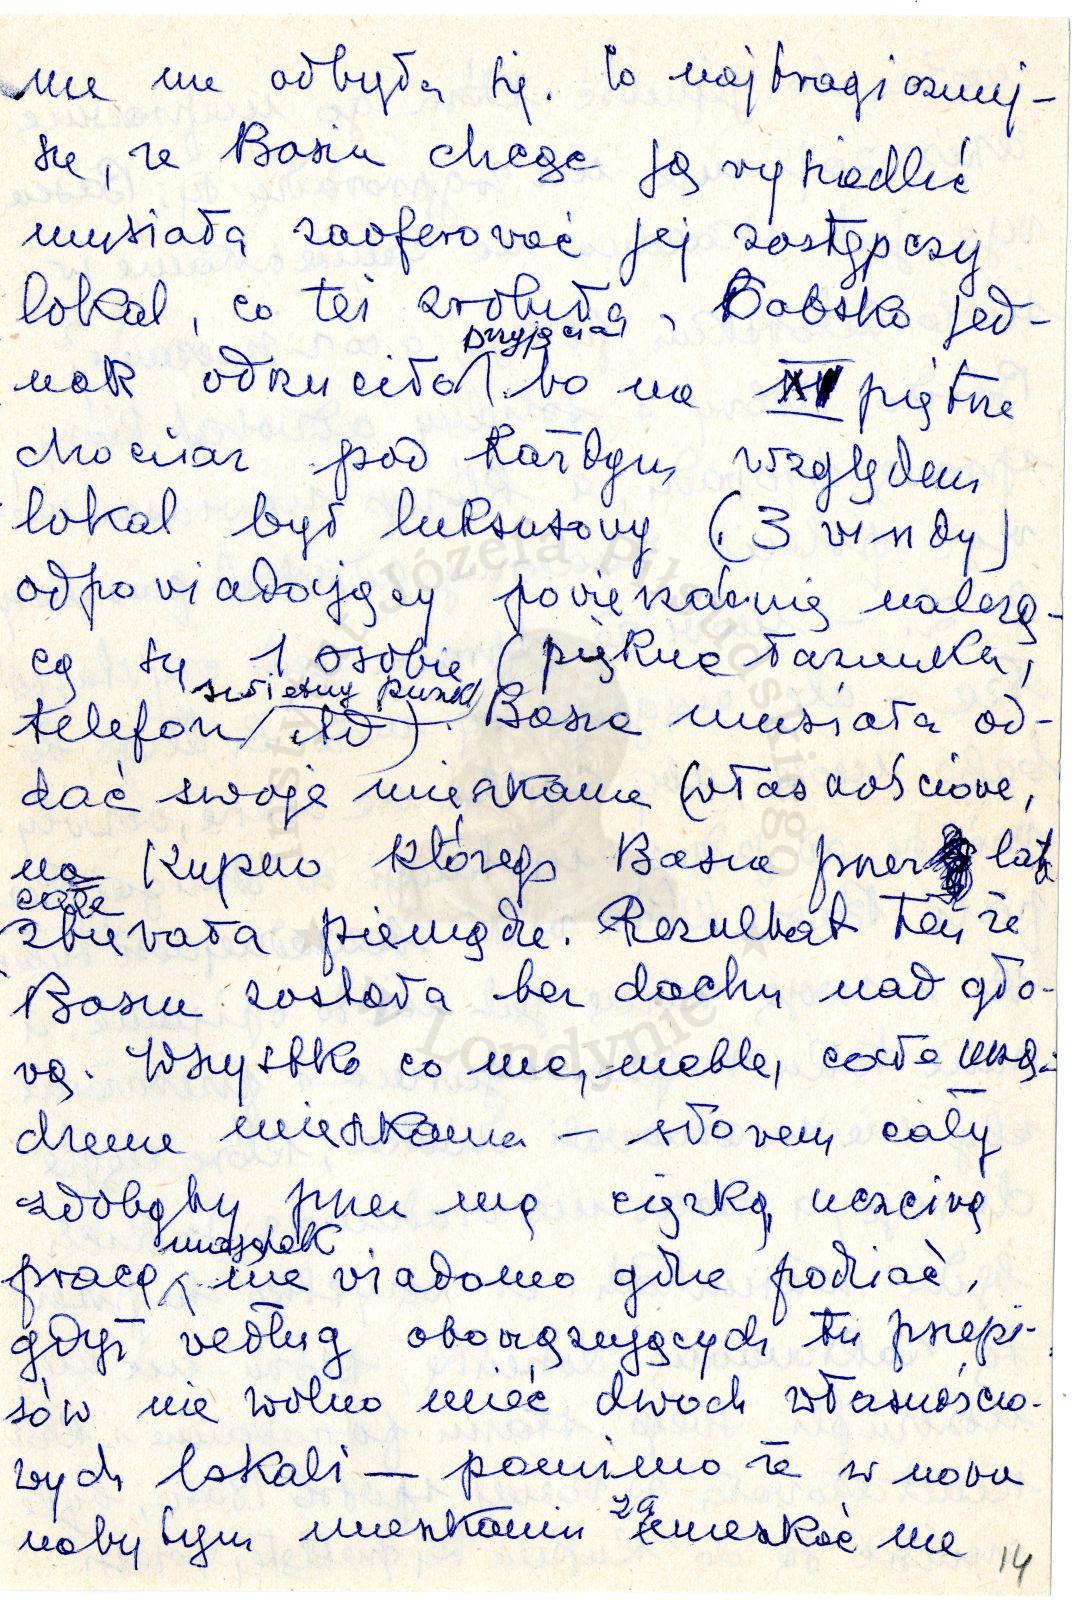 nie nie odbyła się. Co najtragiczniej-
sze, że Basia chcąc ją wysiedlić
musiała zaoferować jej zastępczy
lokal, co też zrobiła, Babsko jed-
nak odrzuciło przyjęcia, bo na XI piętrze
chociaż pod każdym względem
lokal był luksusowy (3 windy)
odpowiadający powierzchnią należą-
cą się 1 osobie (piękna łazienka,
telefon, świetny punkt itd). Basia musiała od-
dać swoje mieszkanie (własnościowe,
na kupno którego Basia przez całe lata
zbierała pieniądze. Rezultat ten że
Basia została bez dachu nad gło-
wą. Wszystko co ma, meble, całe urzą-
dzenie mieszkania – słowem cały
zdobyty przez nią ciężką, uczciwą
pracą majątek nie wiadomo gdzie podziać,
gdyż według obowiązujących tu przepi-
sów nie wolno mieć dwóch własnościo-
wych lokali – pomimo że w nowo
nabytym mieszkaniu zamieszkać nie
14
Instytut Józefa Piłsudskiego
w Londynie